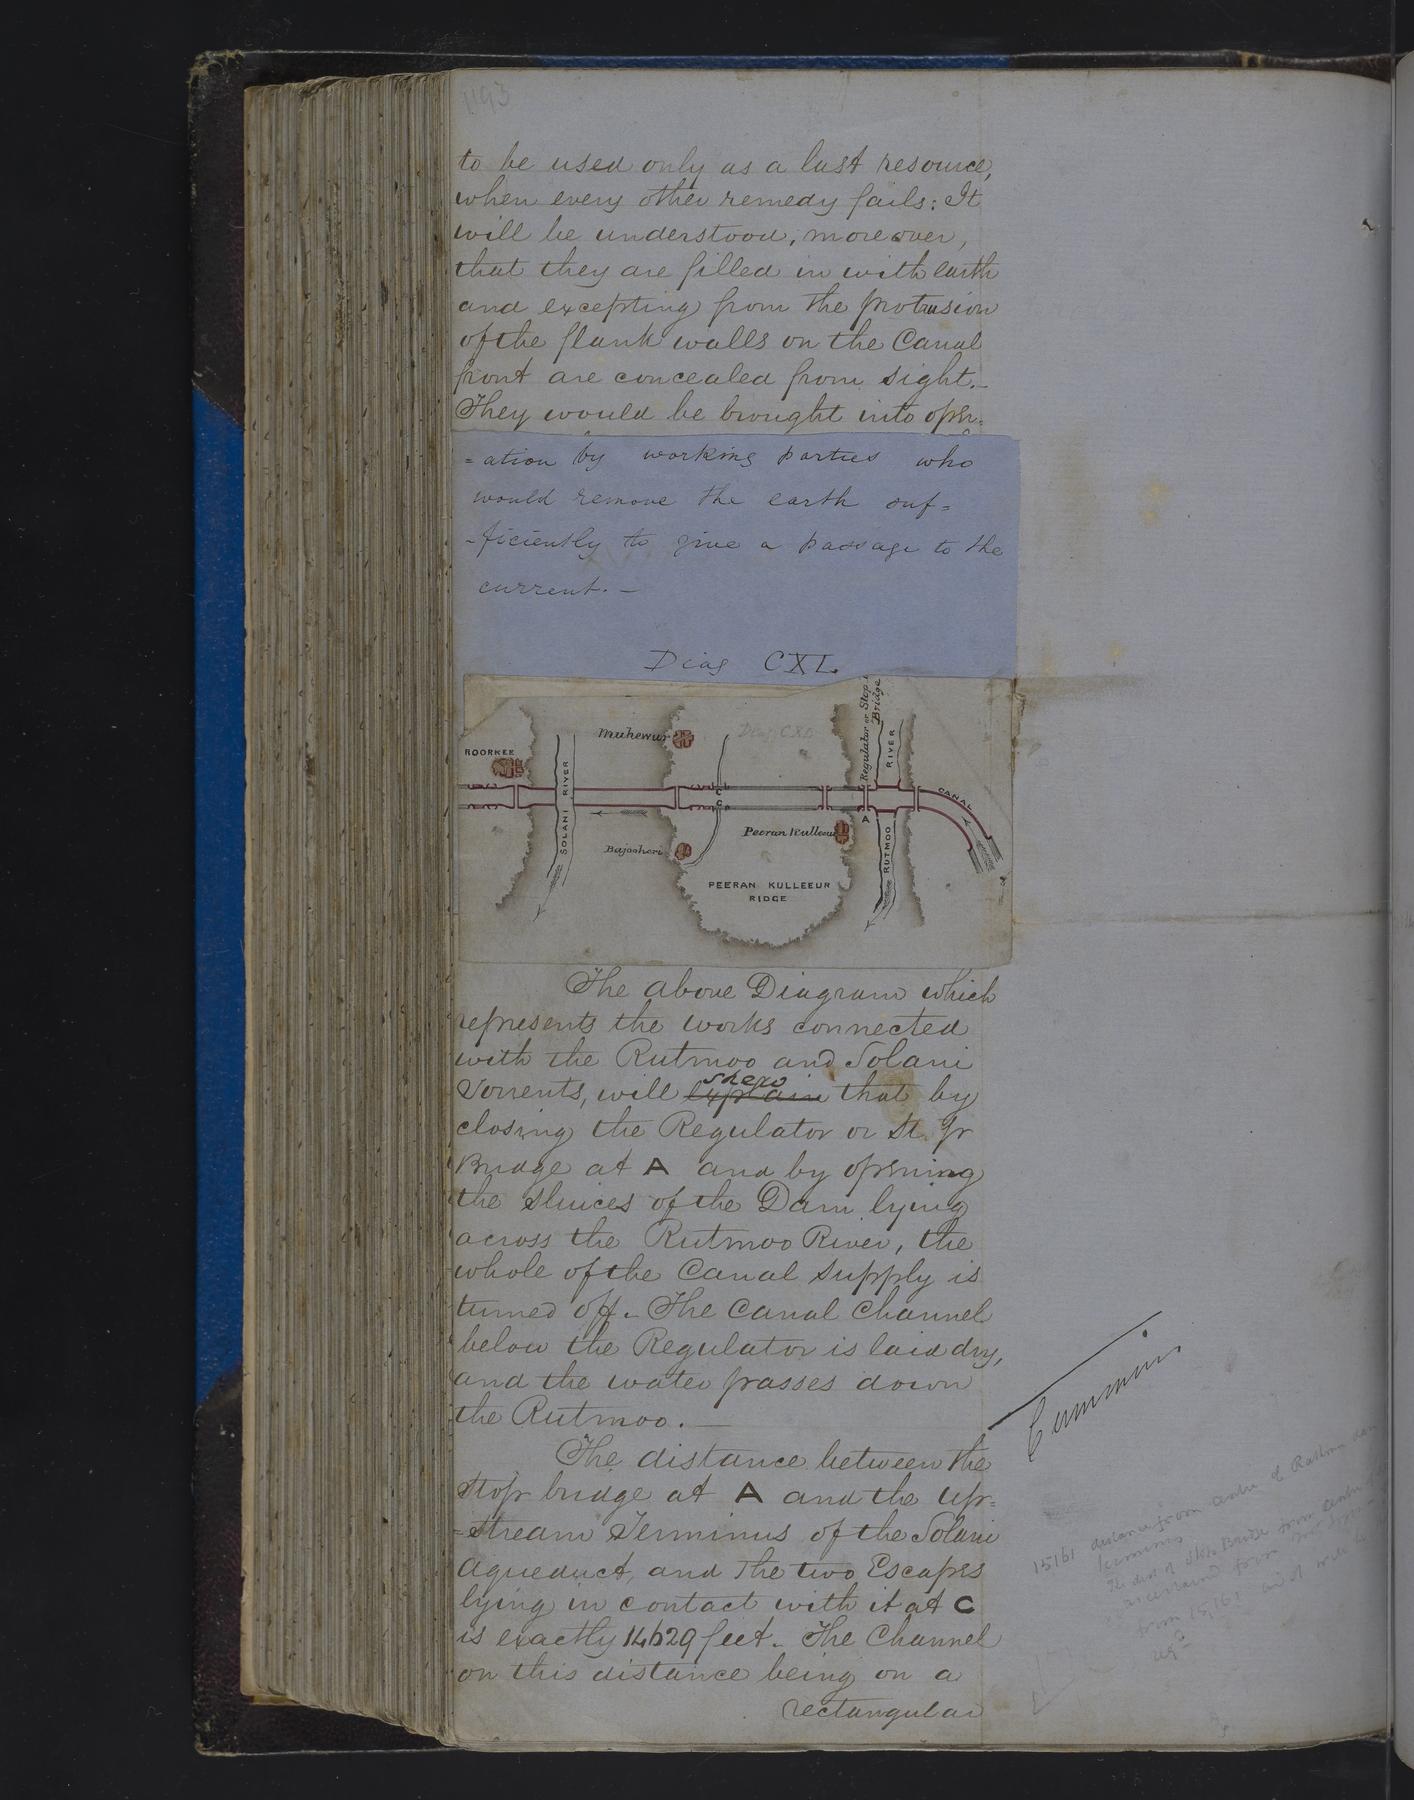 1193
to be used only as a last resource,
when every other remedy fails: It
will be understood, moreover,
that they are filled in with earth
and excepting from the protrusion
of the flank walls on the Canal
front are concealed from sight._
They would be brought into oper-
=ation by working parties who
would remove the earth suf=
-ficiently to give a passage to the
current. _
Diag CXL
Diag. CXL
Regulator or Stop
Bridge
Muhewur
ROORKEE
RIVER
SOLANI RIVER
CANAL
C
C
A
Peeran Kulleeur
RUTMOO
Bajooheri
PEERAN KULLEEUR
RIDGE
The above Diagram which
represents the works connected
with the Rutmoo and Solani
shew
Torrents, will explain that by
closing the Regulator or St. Gr
Bridge at A and by opening
the sluices of the Dam lying
across the Rutmoo River, the
whole of the Canal supply is
turned off. The Canal Channel
below the Regulator is laid dry,
and the water passes down
the Rutmoo. _
The distance between the
Stop bridge at A and the Up=
=stream Terminus of the Solani
Aqueduct, and the two Escapes
lying in contact with it at C
is exactly 14629 feet. The Channel
on this distance being on a
rectangular
15161 distance from centre of
terminus
from 15,161